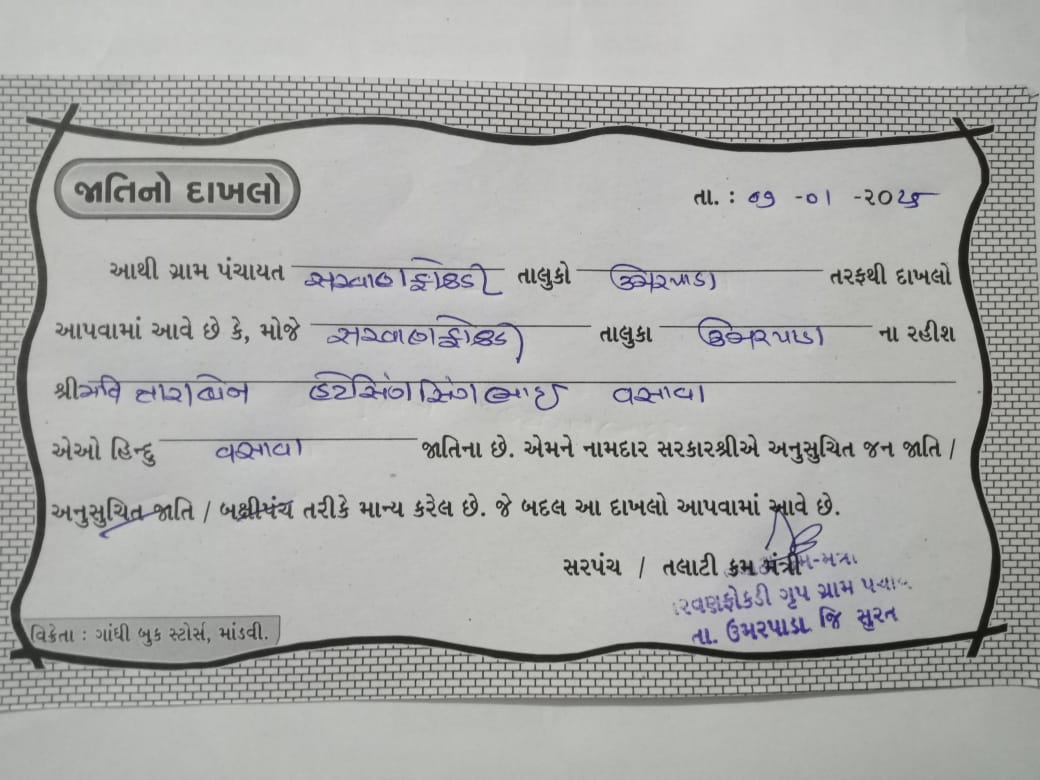 જાતિનો દાખલો
તા. : ૦૭ -૦૧ -૨૦૨૬
આથી ગ્રામ પંચાયત સરવાણફોકડી તાલુકો ઉમરપાડા તરફથી દાખલો
આપવામાં આવે છે કે, મોજે સરવાણફોકડી તાલુકા ઉમરપાડા ના રહીશ
શ્રીમતિ તારાબેન વસાવા
એઓ હિન્દુ વસાવા જાતિના છે. એમને નામદાર સરકારશ્રીએ અનુસુચિત જન જાતિ /
અનુસુચિત જાતિ / બક્ષીપંચ તરીકે માન્ય કરેલ છે. જે બદલ આ દાખલો આપવામાં આવે છે.
સરપંચ / તલાટી ક્રમ મંત્રી
ગૃપ ગ્રામ
તા. ઉમરપાડા જિ સુરત
વિક્રેતા : ગાંધી બુક સ્ટોર્સ, માંડવી.